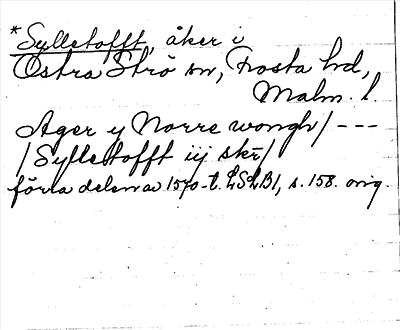 *Sylletofft, åker i
Östra Strö sn, Frosta hd,
Malm. l.
Ager y Norre wongh/ ---
/Sylletofft iij skr/
förra delen av 1570-t. LSLB1, s. 158. orig.